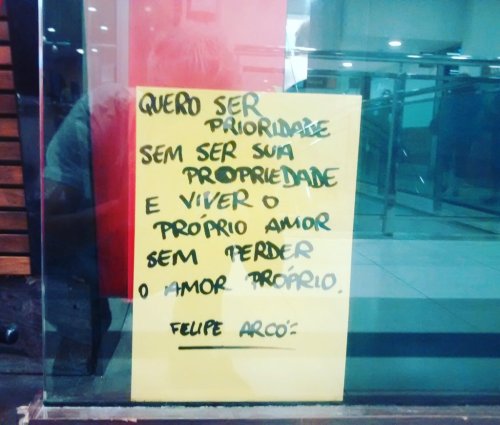 QUERO SER
PRIORIDADE
SEM SER SUA
PROPRIEDADE
E VIVER O
PRÓPRIO AMOR
SEM PERDER
O AMOR PRÓPRIO.
FELIPE ARCO